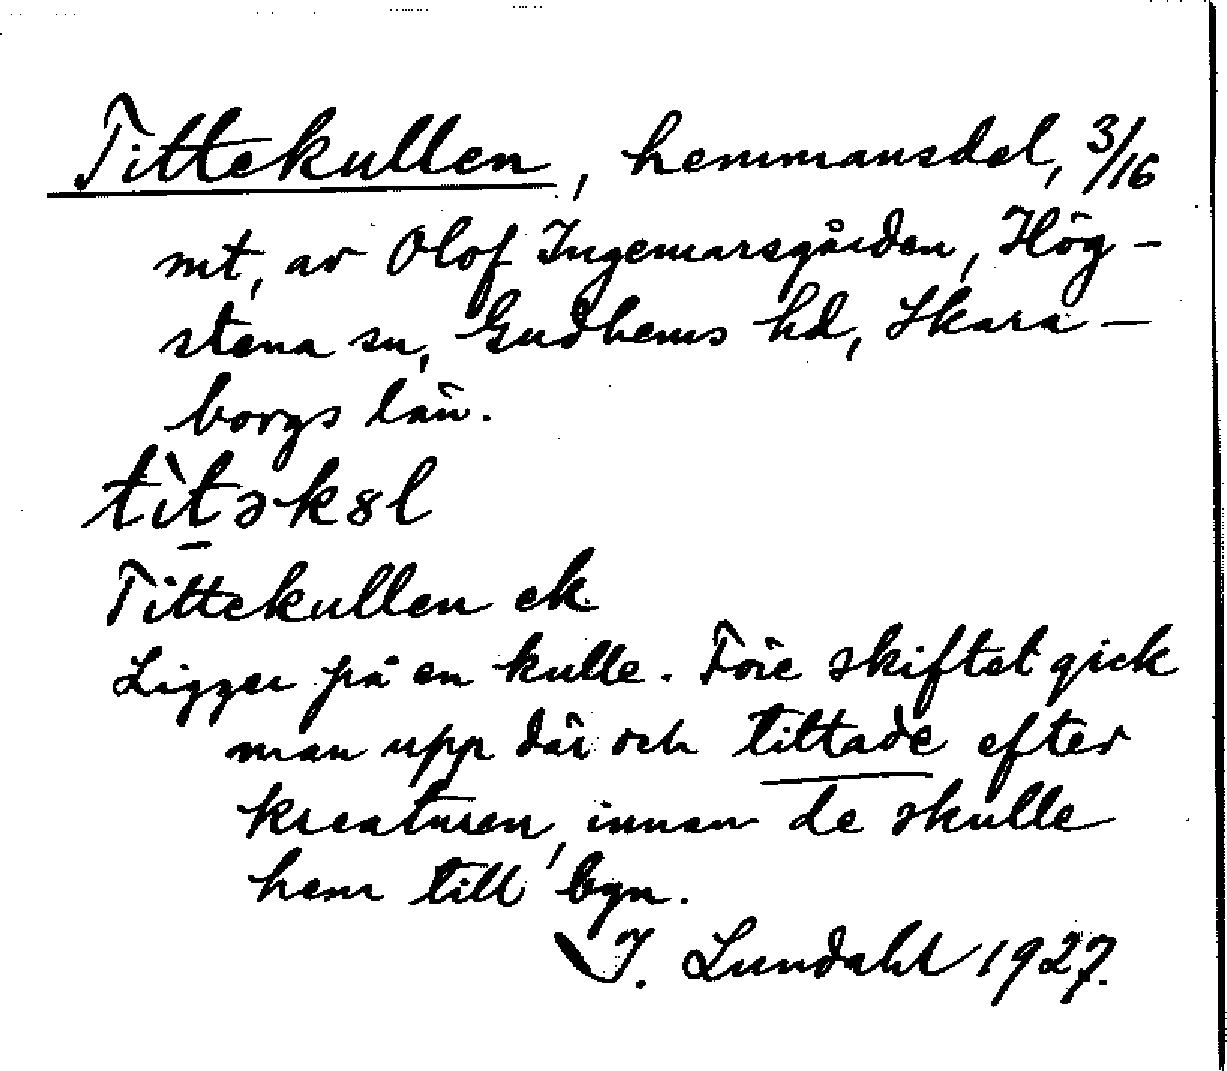 Tittekullen, hemmansdel, 3/16
mt, av Olof Ingemarsgården, Hög-
stena sn, Gudhems hd, Skara-
borgs län.
tìtəkɞl
Tittekullen ek
Ligger på en kulle. Före skiftet gick
man upp där och tittade efter
kreaturen, innan de skulle
hem till byn.
I. Lundahl 1927.